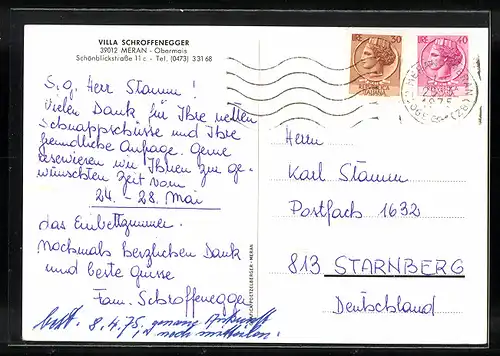 VILLA SCHROFFENEGGER
39012 MERAN - Obermais
Schönblickstraße 11 c - Tel. (0473) 33168
S.g. Herr Stamm!
Vielen Dank für Ihre netten
Schnappschüsse und Ihre
freundliche Anfrage. Gerne
reservieren wir Ihnen zur ge-
wünschten Zeit vom
24. - 28. Mai
das Einbettzimmer.
Nochmals herzlichen Dank
und beste Grüsse
Fam. Schroffenegger
best. 8.4.75, genaue Ankunft
noch mitteilen!
LIRE 30
LIRE 40
1975
Herrn
Karl Stamm
Postfach 1632
813 STARNBERG
Deutschland